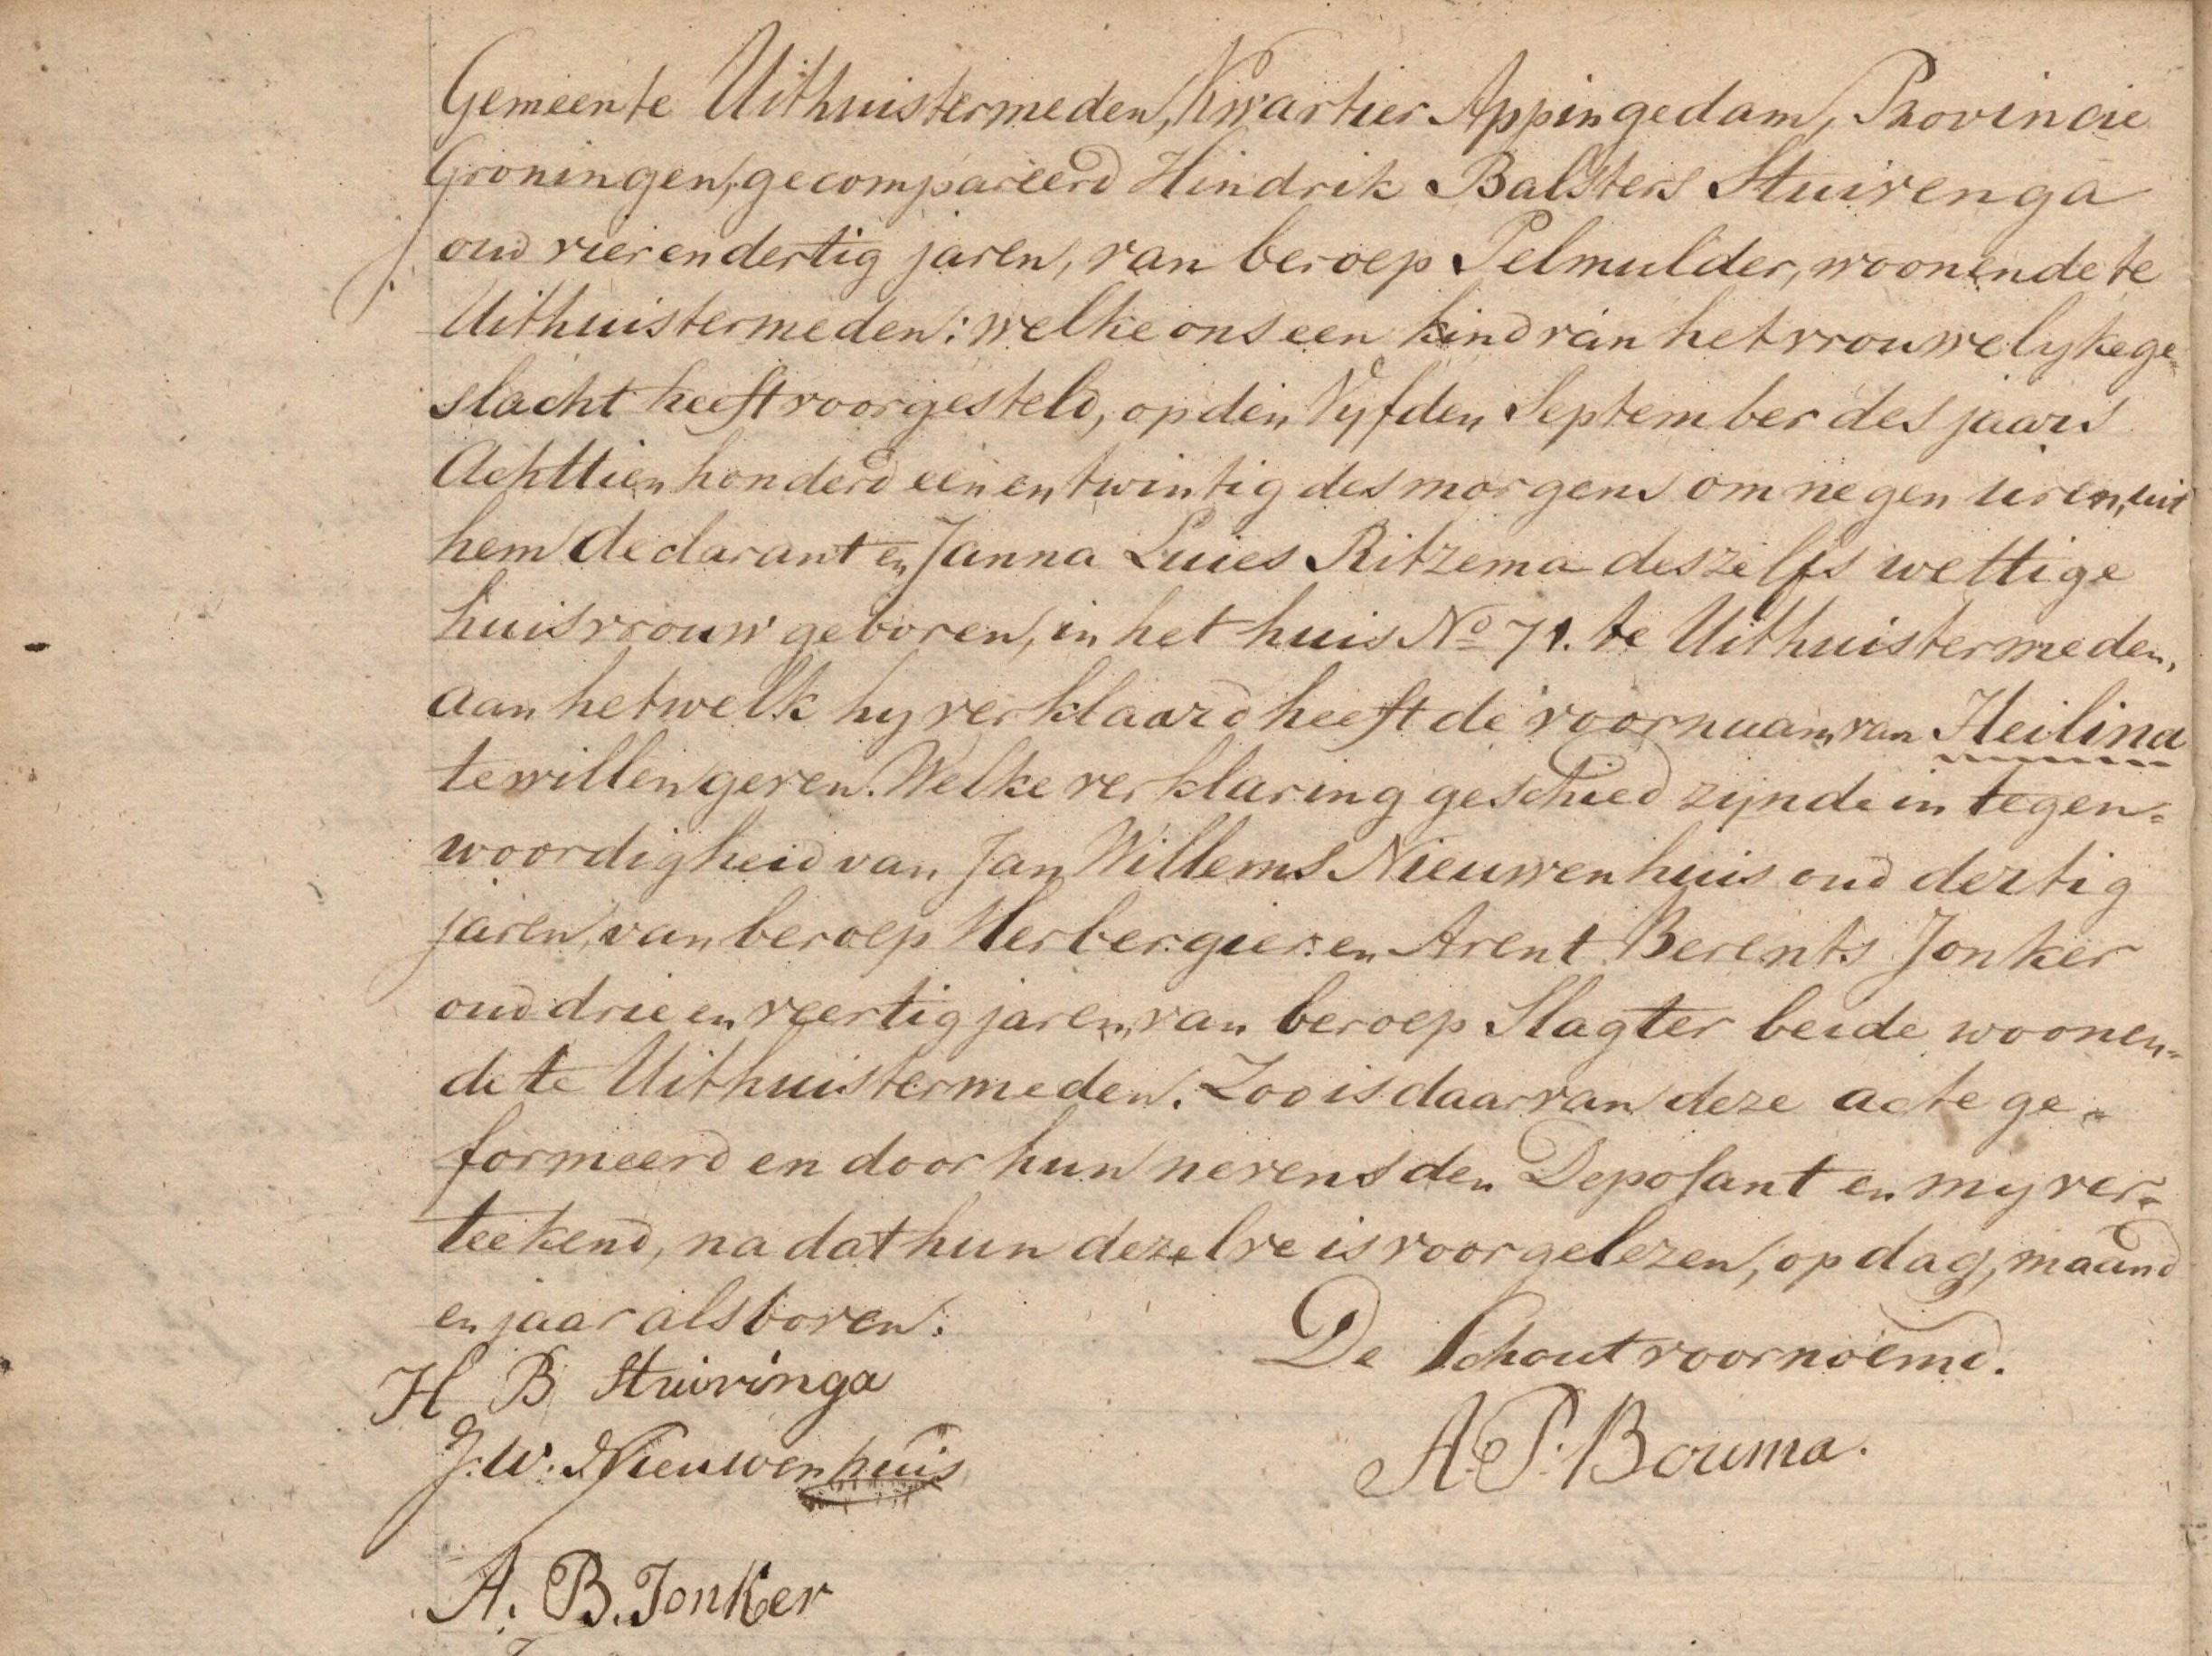 Gemeente Uithuistermeden, Kwartier Appingedam, Provincie
Groningen, gecompareerd Hindrik Balsters Stuivenga
oud vierendertig jaren, van beroep Pelmulder, woonende te
Uithuistermeden: welke ons een kind van het vrouwelyke ge=
slacht heeft voorgesteld, op den Vyfden September des jaars
Achttienhonderd eenentwintig des morgens om negen uren, uit
hem declarant en Janna Luies Ritzema deszelfs wettige
huisvrouw geboren, in het huis No 71. te Uithuistermeden,
aan hetwelk hy verklaard heeft de voornaam van Heilina
te willen geven. Welke verklaring geschied zynde in tegen=
woordigheid van Jan Willems Nieuwenhuis oud dertig
jaren, van beroep Herbergier: en Arent Berents Jonker
oud drie en veertig jaren, van beroep Slagter beide woonen=
de te Uithuistermeden. Zoo is daarvan deze acte ge=
formeerd en door hun nevens den Deposant en my ver=
teekend, na dat hun dezelve is voorgelezen, op dag, maand
en jaar als boven.
De Schout voornoemd.
H B Stuivinga
J. W. Nieuwenhuis
A. P. Bouma.
A. B. Jonker